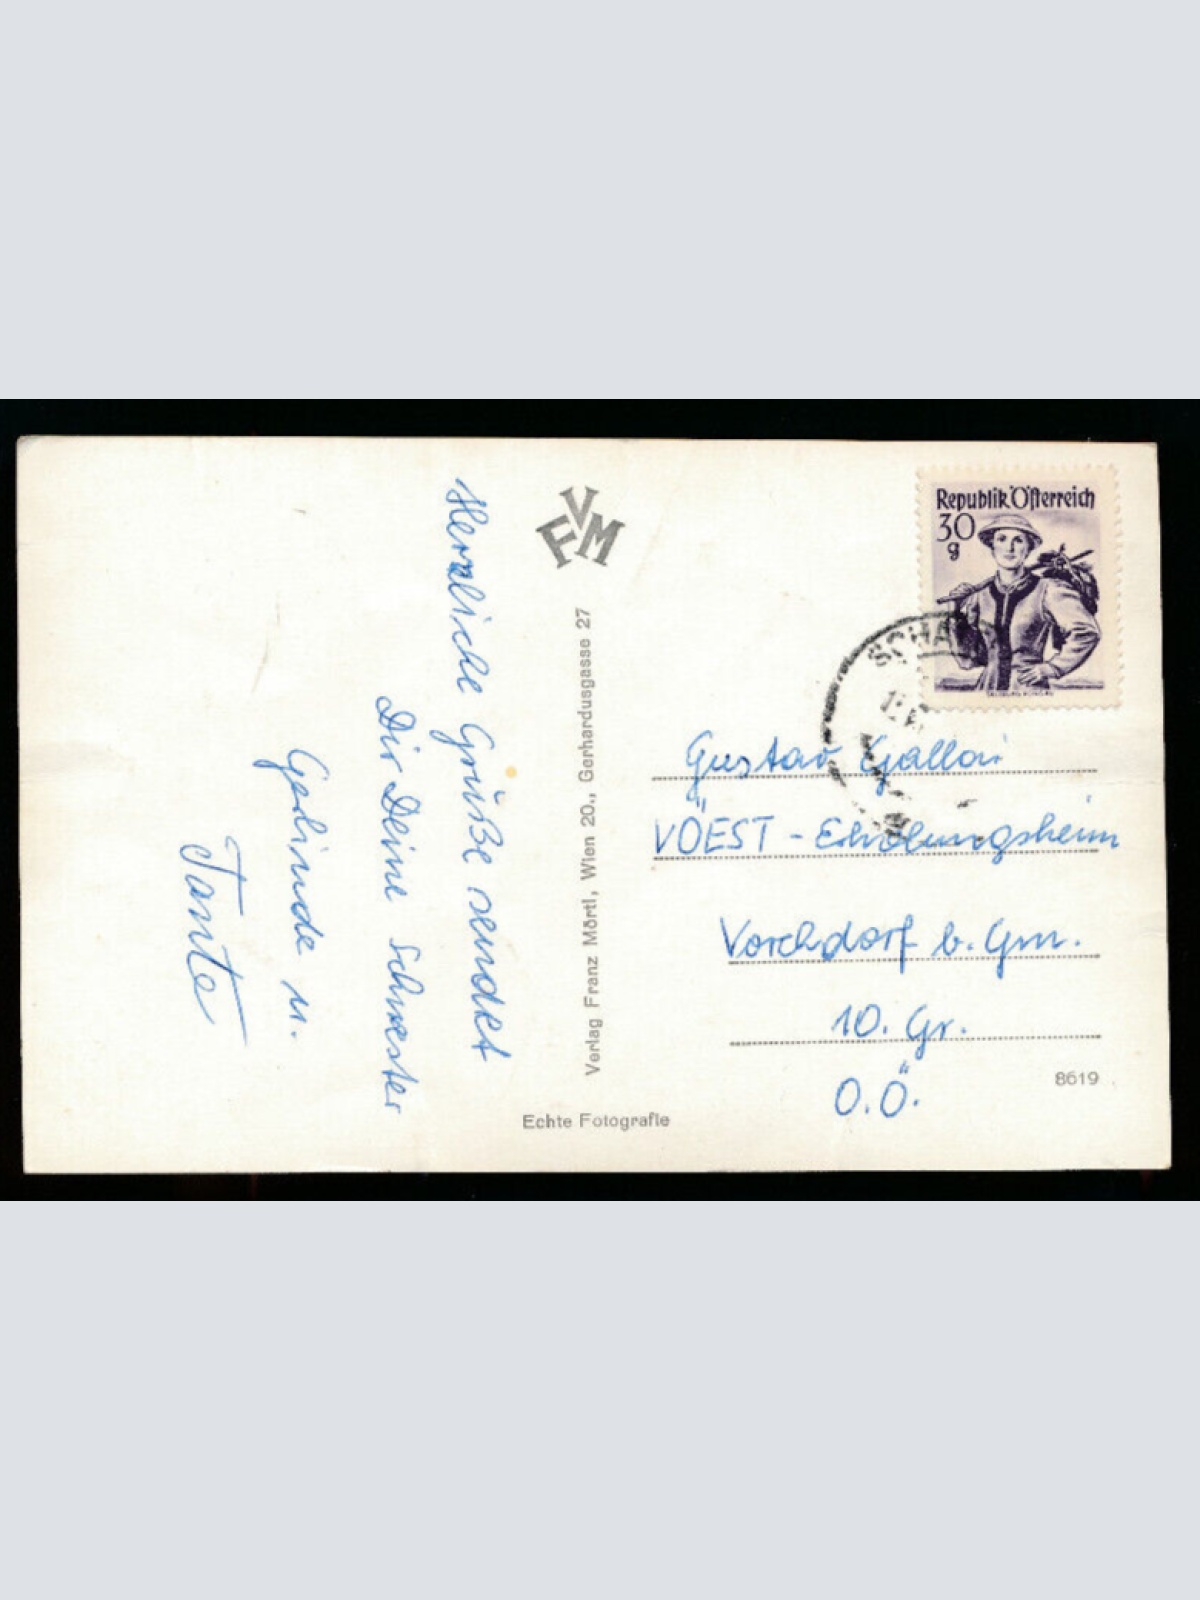 Herzliche Grüße sendet
Dir Deine Schwester
Gerlinde u.
Tante
FVM
Verlag Franz Mörtl, Wien 20., Gerhardusgasse 27
Echte Fotografie
Republik Österreich
30
g
SALZBURG-PONGAU
Gustav
VÖEST - Erholungsheim
Vorchdorf b. Gm.
10. Gr.
O.Ö.
8619